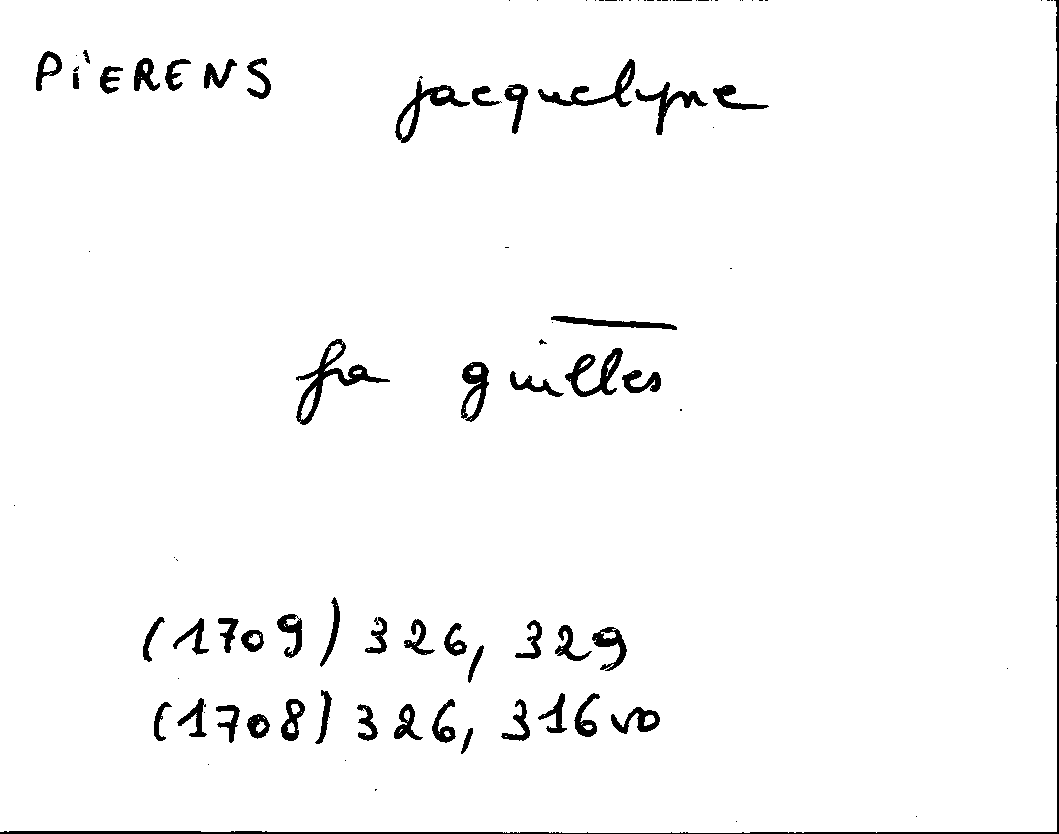 PIERENS jacquelyne
fa guilles
(1709) 326, 329
(1708) 326, 316vo